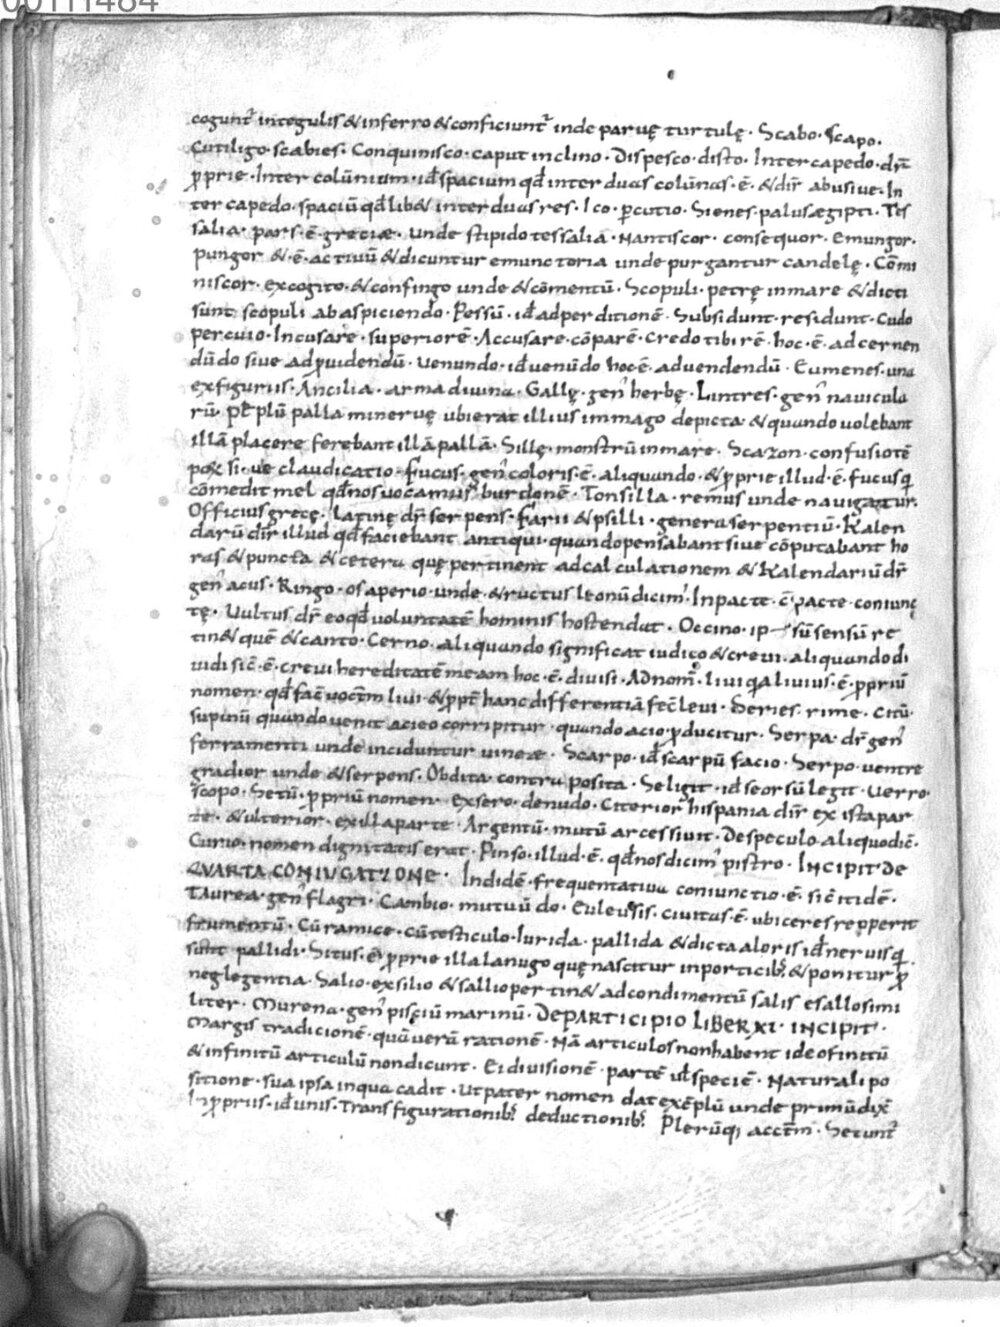 00111484
cogunt᷑ integulis & inferro & conficiunt᷑ inde paruę turtulę · Scabo · Scapo ·
Cutiligo · scabies · Conquinisco · caput inclino · Dispesco · disto · Intercapedo · dr̄
ꝓprie · Inter colūnium · id̄ spacium qd̄ inter duas colūnas · ē · & dir̄ abusiue · In
ter capedo · spaciū qd̄ lib& inter duas res · Ico · ꝑcutio · Sienes · palus ægipti · Tes
salia · pars · ē · greciæ · unde stipido tessalia · Nantiscor · consequor · Emungor ·
pungor & · ē · actiuū & dicuntur emunctoria unde purgantur candelę · Cōmi
niscor · excogito · & confingo unde & cōmentū · Scopuli · petrę inmare & dicti
sunt scopuli ab aspiciendo · Pessū · id̄ adperditionē · Subsidunt · residunt · Cudo
percutio · Incusare · superiorē · Accusare · cōparē · Credo tibi rē · hoc · ē · ad cernen
dū do siue ad ꝓuidendū · Uenundo · id̄ uenū do hoc · ē · aduendendū · Eumenes · una
exfiguriis · Ancilia · arma diuina · Gallę · gen̄ herbę · Lintres · gen̄ nauicula
rū · peplū palla mineruę ubi erat illius immago depicta · & quando uolebant
illā placare ferebant illā pallā · Sillę · monstrū inmare · Scazon · confusio tē
pox si · ue claudicatio · Fucus · gen̄ coloris · ē · aliquando · & ꝓprie illud · ē · fucus q̄
cōmedit mel qd̄ nos uocamus burdonē · Tonsilla · remus unde nauigatur ·
Officius grecę · latine dr̄ serpens · Farii & psilli · genera serpentiū · Kalen
darū dir̄ illud qd̄ faciebant antiqui · quando pensabant siue cōputabant ho
ras & puncta & cetera quę pertinent ad calculationem & Kalendariū dr̄
gen̄ acus · Ringo · os aperio · unde · & ructus leonū dicim᷒ · Inpacte · c̄ pacte · coniunc
tę · Uultus dr̄ eo qd̄ uoluntatē hominis hostendat · Occino · sū sensū re
tin& quē & canto · Cerno · aliquando significat iudico & creui · aliquando di
uidi sic̄ · ē · creui hereditatē meam hoc · ē · diuisi · Ad nom̄ · liui q̄a liuius · ē · ꝓpriū
nomen · qd̄ fac̄ uoct̄m liui · & ppt̄ hanc differentiā fec̄ leui · Series · rime · Citū ·
supinū quando uenit a cieo corripitur · quando a cio · ꝓducitur · Serpa · dr̄ gen̄
ferramenti unde inciduntur uineæ · Scarpo · id̄ scarpū facio · Serpo · uentre
gradior unde & serpens · Obdita · contra posita · Seligit · id̄ seorsū legit · Uerro ·
scopo · Setū · ꝓpriū nomen · Exsero · denudo · Citerior hispania dir̄ ex ista par
te · & ulterior · ex illa parte · Argentū · mutū arcessiuit · Despeculo · aliquo dic̄ ·
Curio · nomen dignitatis erat · Pinso · illud · ē · qd̄ nos dicim᷒ pistro · INCIPIT DE
QVARTA CONIVGATIONE · Indidē · frequentatiua coniunctio · ē · sic̄ itidē ·
Taurea · gen̄ flagri · Cambio · mutuū do · Euleusis · ciuitas · ē · ubi ceres repperit
frumentū · Cū ramice · cū testiculo · lurida · pallida & dicta a loris id̄ neruis q̄
sunt pallidi · Situs · ē ꝓprie illa lanugo quę nascitur inporticib; & ponitur ꝓ
neglegentia · Salio · exsilio & sallio pertin& ad condimentū salis & sallo simi
liter · Murena · gen̄ pisciū marinū · DE PARTICIPIO LIBER XI · INCIPIT ·
Margis tradicionē · quā uerā rationē · Nā articulos non habent ideo finitū
& infinitū articulū non dicunt · Ei diuisionē · partē ul̄ speciē · Naturali po
sitione · sua ipsa inqua cadit · Ut pater nomen dat exēplū unde primū dix̄
Inꝓpriis · id̄ unis · Transfigurationib; deductionib; Plerūq; acct̄m · Secunt᷑